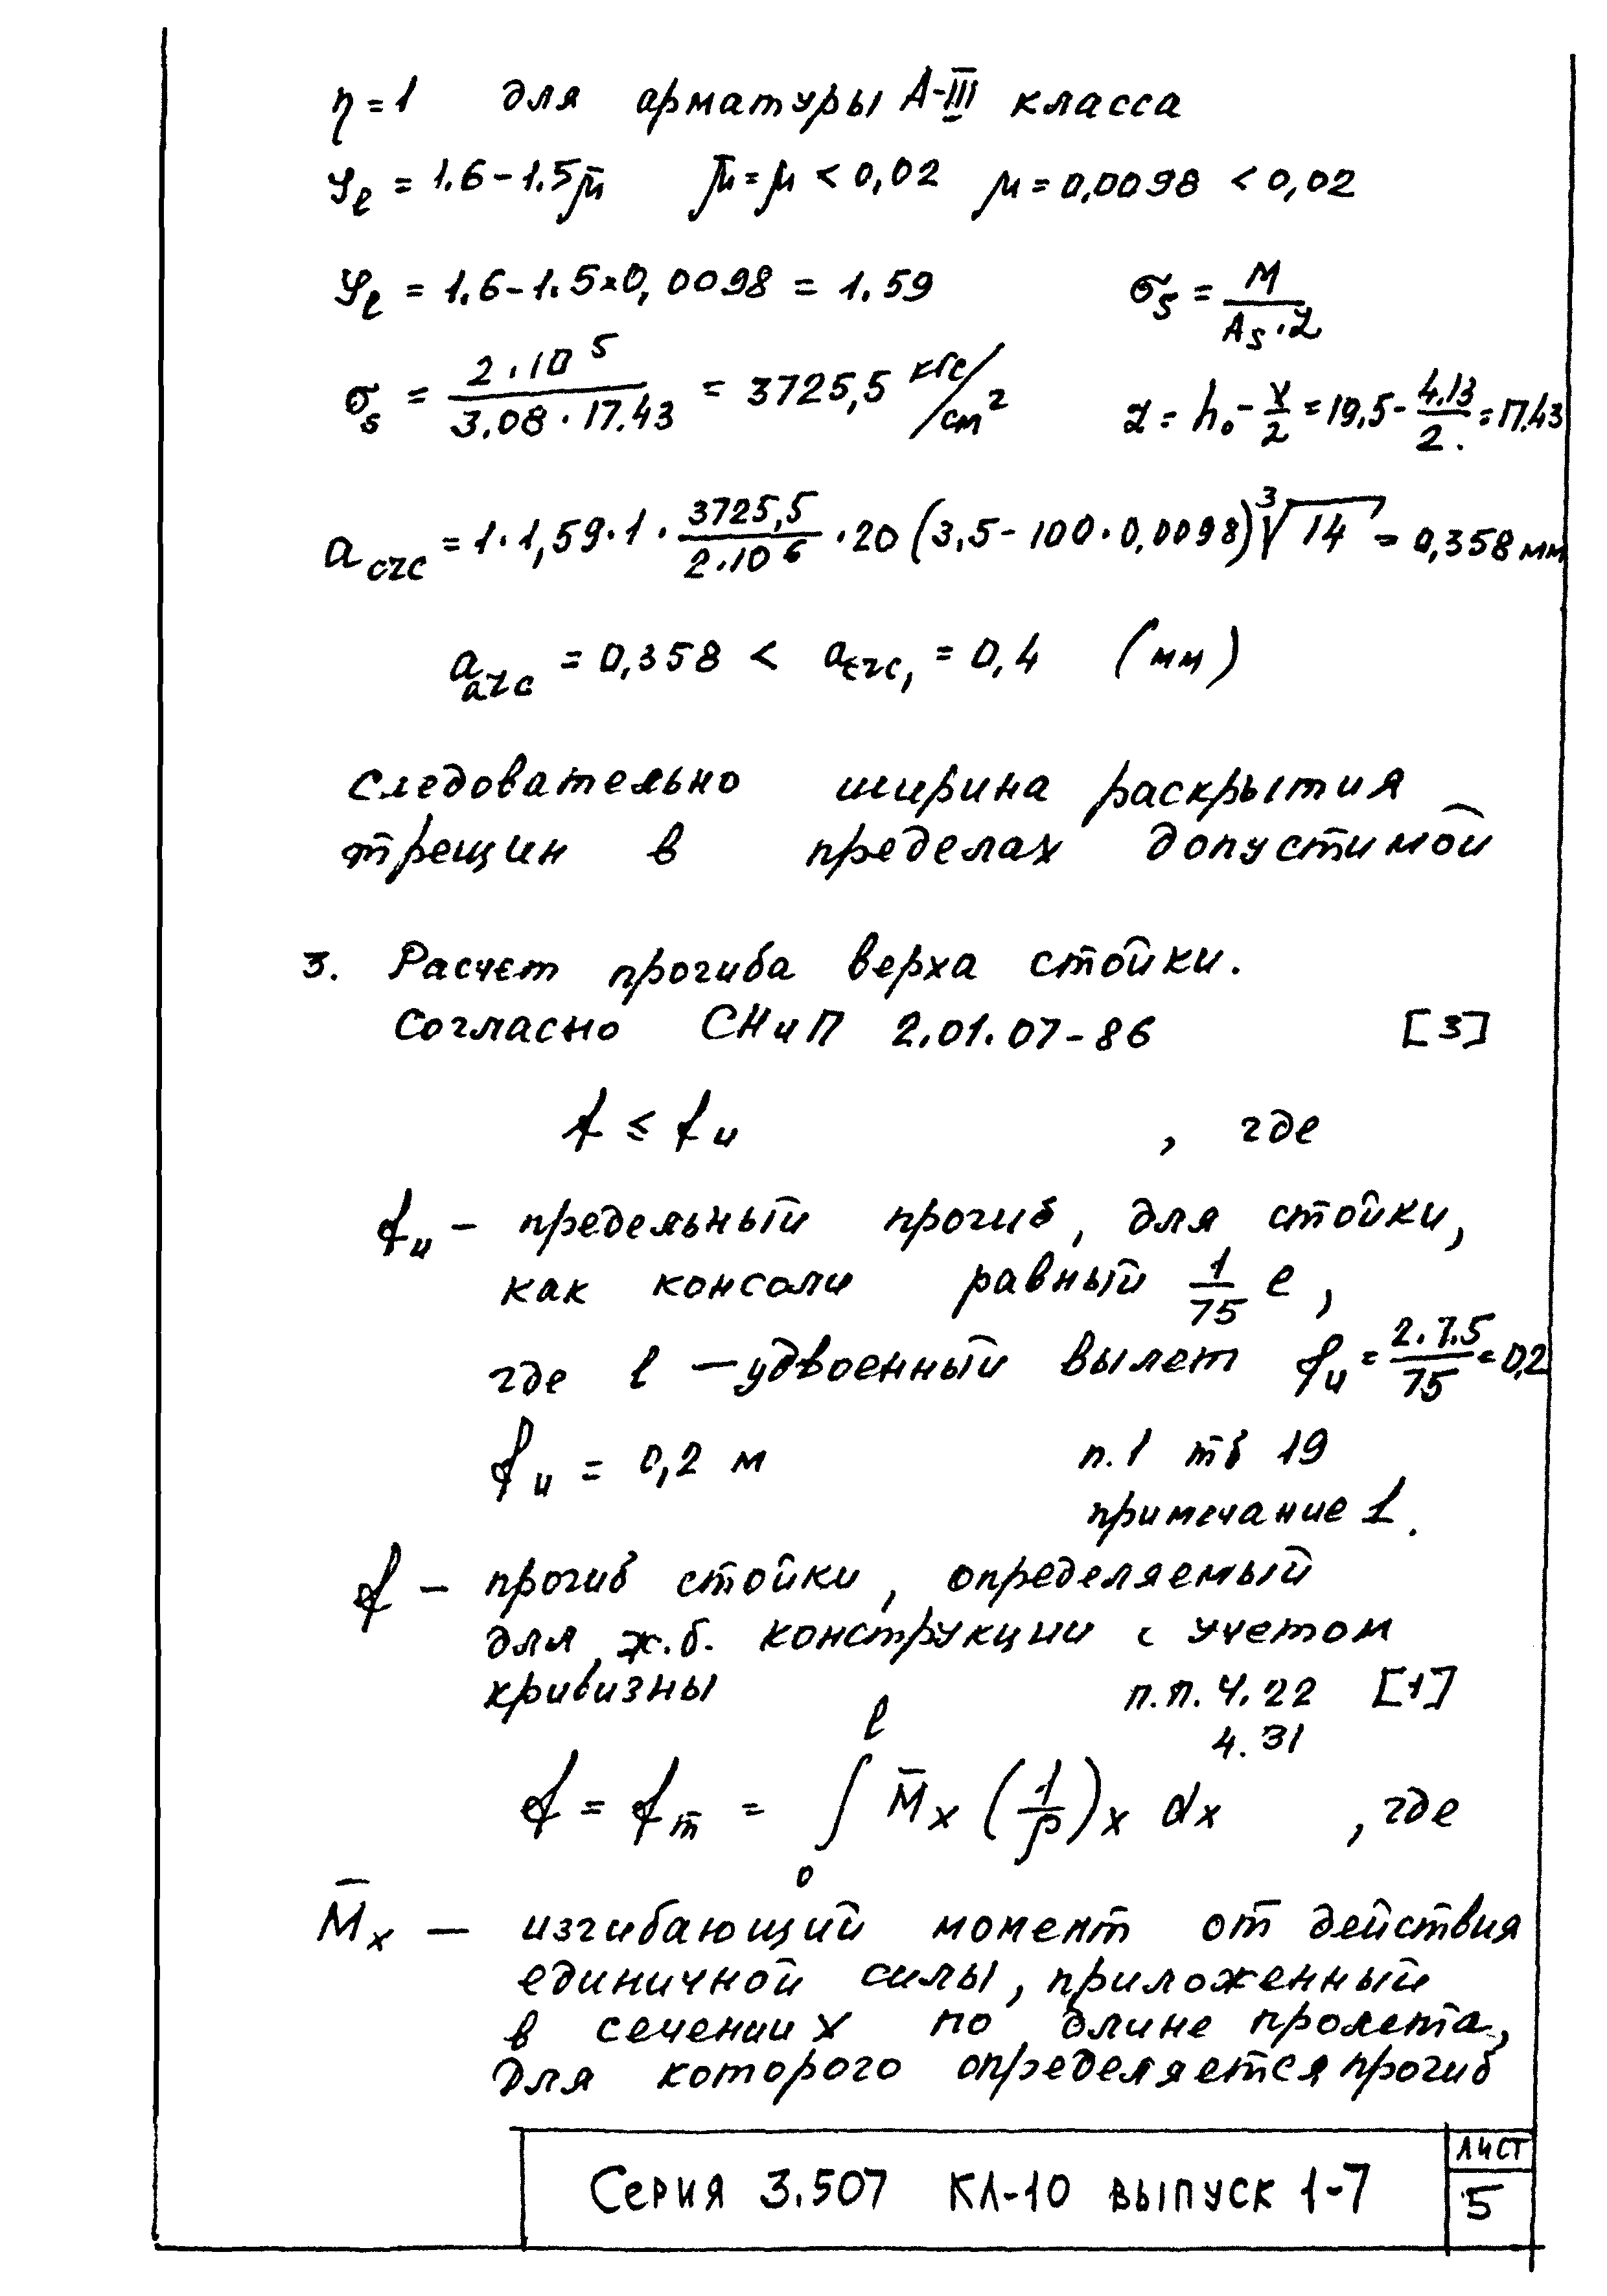 η = 1 для арматуры А-III класса
φℓ = 1.6 - 1.5μ̄ μ̄ = μ < 0,02 μ = 0,0098 < 0,02
φℓ = 1.6 - 1.5×0,0098 = 1.59 σs = M / As·z
σs = 2·10^5 / 3.08·17.43 = 3725,5 кгс/см² z = h₀ - x/2 = 19,5 - 4.13/2. = 17.43
a crc = 1·1,59·1· 3725,5 / 2·10^6 ·20 (3,5 - 100·0,0098) ³√14 = 0,358 мм
a crc = 0,358 < a crc, = 0,4 (мм)
Следовательно ширина раскрытия
трещин в пределах допустимой
3. Расчет прогиба верха стойки.
Согласно СНиП 2.01.07-86 [3]
f ≤ fu , где
fu - предельный прогиб, для стойки,
как консоли равный 1/75 ℓ,
где ℓ - удвоенный вылет fu = 2.7.5 / 75 = 0,2
fu = 0,2 м п.1 тб 19
примечание 1.
f - прогиб стойки, определяемый
для ж.б. конструкции с учетом
кривизны п.п. 4.22 [1]
4.31
f = fm = ∫₀^ℓ M̄x (1/ρ)x dx , где
M̄x — изгибающий момент от действия
единичной силы, приложенный
в сечении х по длине пролета,
для которого определяется прогиб
Серия 3.507 КЛ-10 выпуск 1-7
лист
5